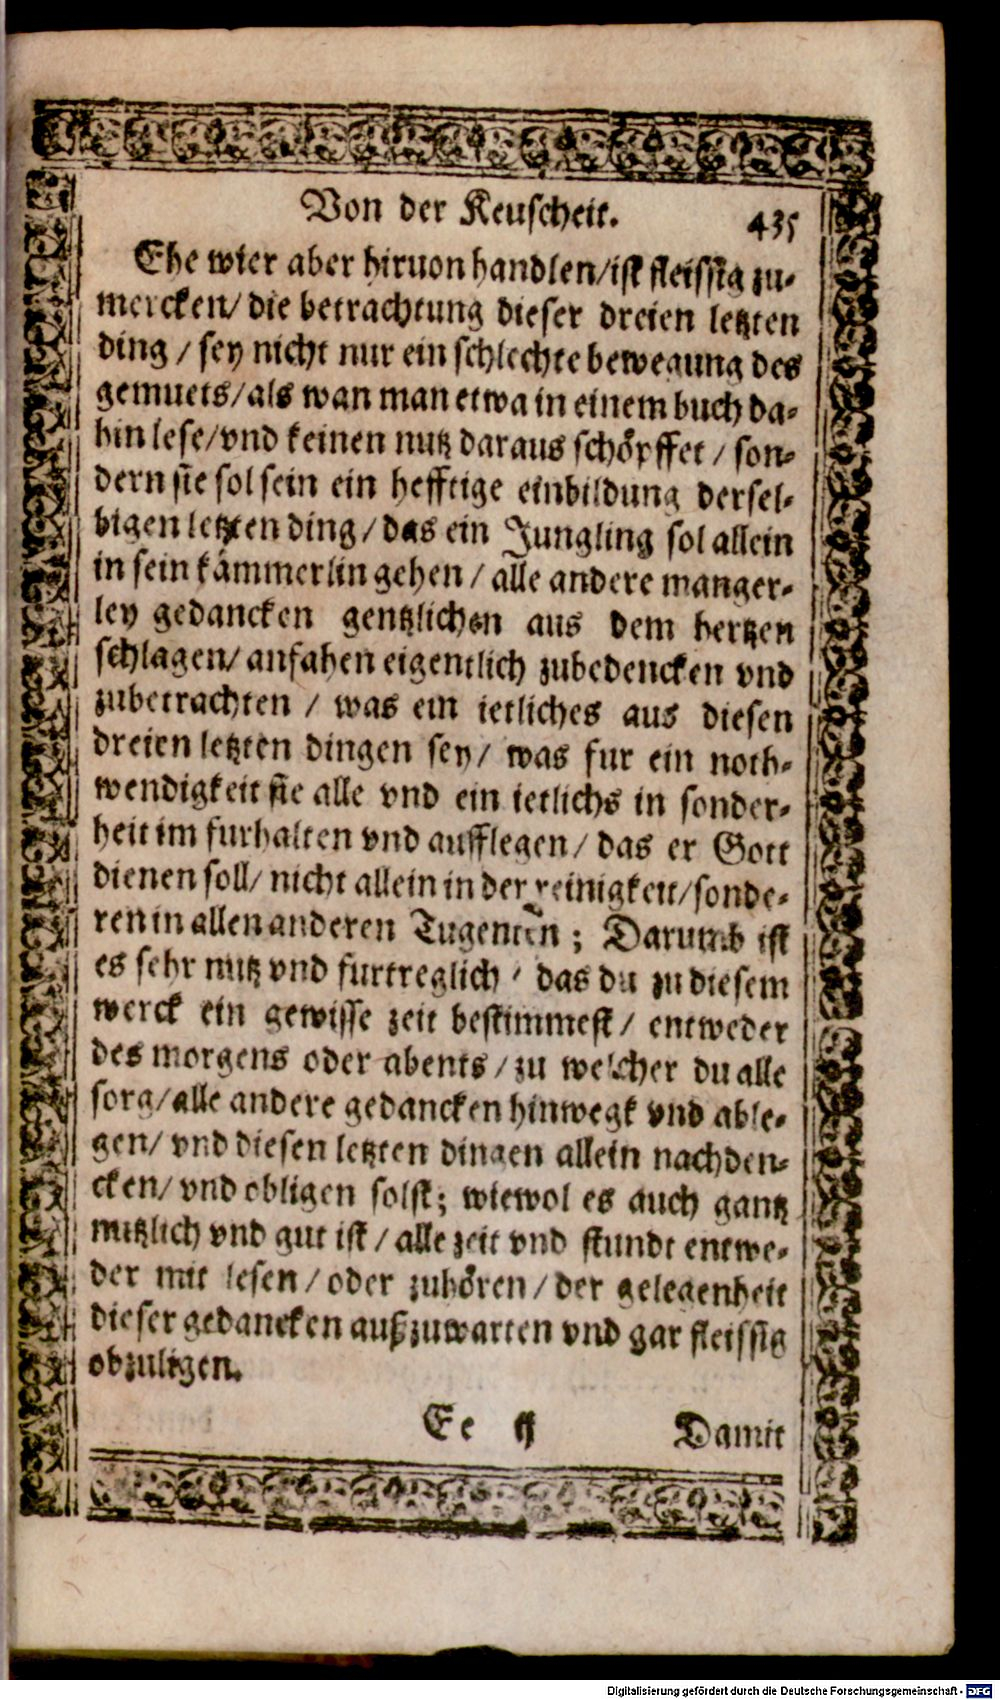 Von der Keuscheit. 435
Ehe wier aber hiruon handlen/ist fleissig zu-
mercken/ die betrachtung dieser dreien letzten
ding / sey nicht nur ein schlechte bewegung des
gemuets/als wan man etwa in einem buch da-
hin lese/vnd keinen nutz daraus schöpffet / son-
dern sie sol sein ein hefftige einbildung dersel-
bigen letzten ding / das ein Jungling sol allein
in sein kämmerlin gehen / alle andere manger-
ley gedancken gentzlichen aus dem hertzen
schlagen/ anfahen eigentlich zubedencken vnd
zubetrachten / was ein ietliches aus diesen
dreien letzten dingen sey/ was fur ein noth-
wendigkeit sie alle vnd ein ietlichs in sonder-
heit im furhalten vnd aufflegen/ das er Gott
dienen soll/ nicht allein in der reinigkeit/sonde-
ren in allen anderen Tugenten ; Darumb ist
es sehr nutz vnd furtreglich / das du zu diesem
werck ein gewisse zeit bestimmest/ entweder
des morgens oder abents / zu welcher du alle
sorg/alle andere gedancken hinwegk vnd able-
gen/ vnd diesen letzten dingen allein nachden-
cken/ vnd obligen solst; wiewol es auch gantz
nutzlich vnd gut ist / alle zeit vnd stundt entwe-
der mit lesen / oder zuhören / der gelegenheit
dieser gedancken außzuwarten vnd gar fleissig
obzuligen.
Ee ij Damit
Digitalisierung gefördert durch die Deutsche Forschungsgemeinschaft - DFG